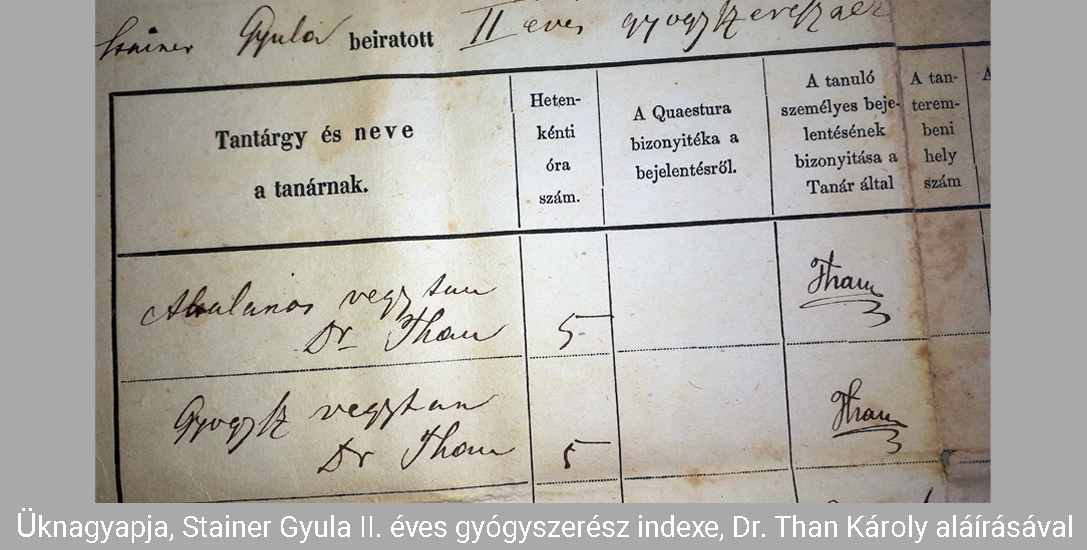 Stainer Gyula beiratott II éves gyógyszerész
Tantárgy és neve
a tanárnak.
Heten-
kénti
óra
szám.
A Quaestura
bizonyitéka a
bejelentésről.
A tanuló
személyes beje-
lentésének
bizonyitása a
Tanár által
A tan-
terem-
beni
hely
szám
A
Általános vegytan
Dr Than
5
Than
Gyogysz vegytan
Dr Than
5
Than
Üknagyapja, Stainer Gyula II. éves gyógyszerész indexe, Dr. Than Károly aláírásával